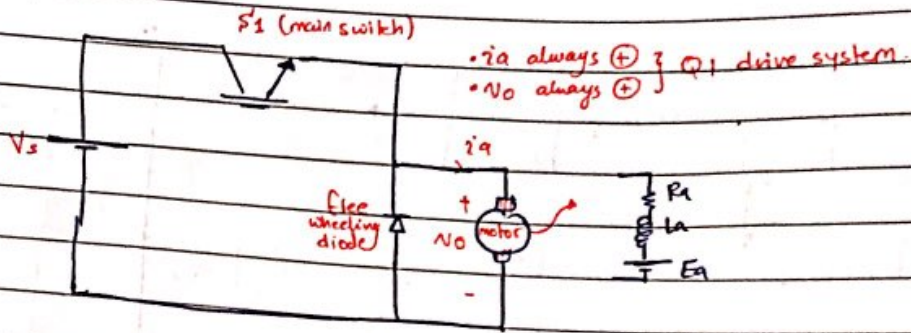 S1 (main switch)
• ia always ⊕ } Q1 drive system.
• Vo always ⊕
Vs
ia
free
wheeling
diode
+
Vo
-
motor
Ra
La
Ea